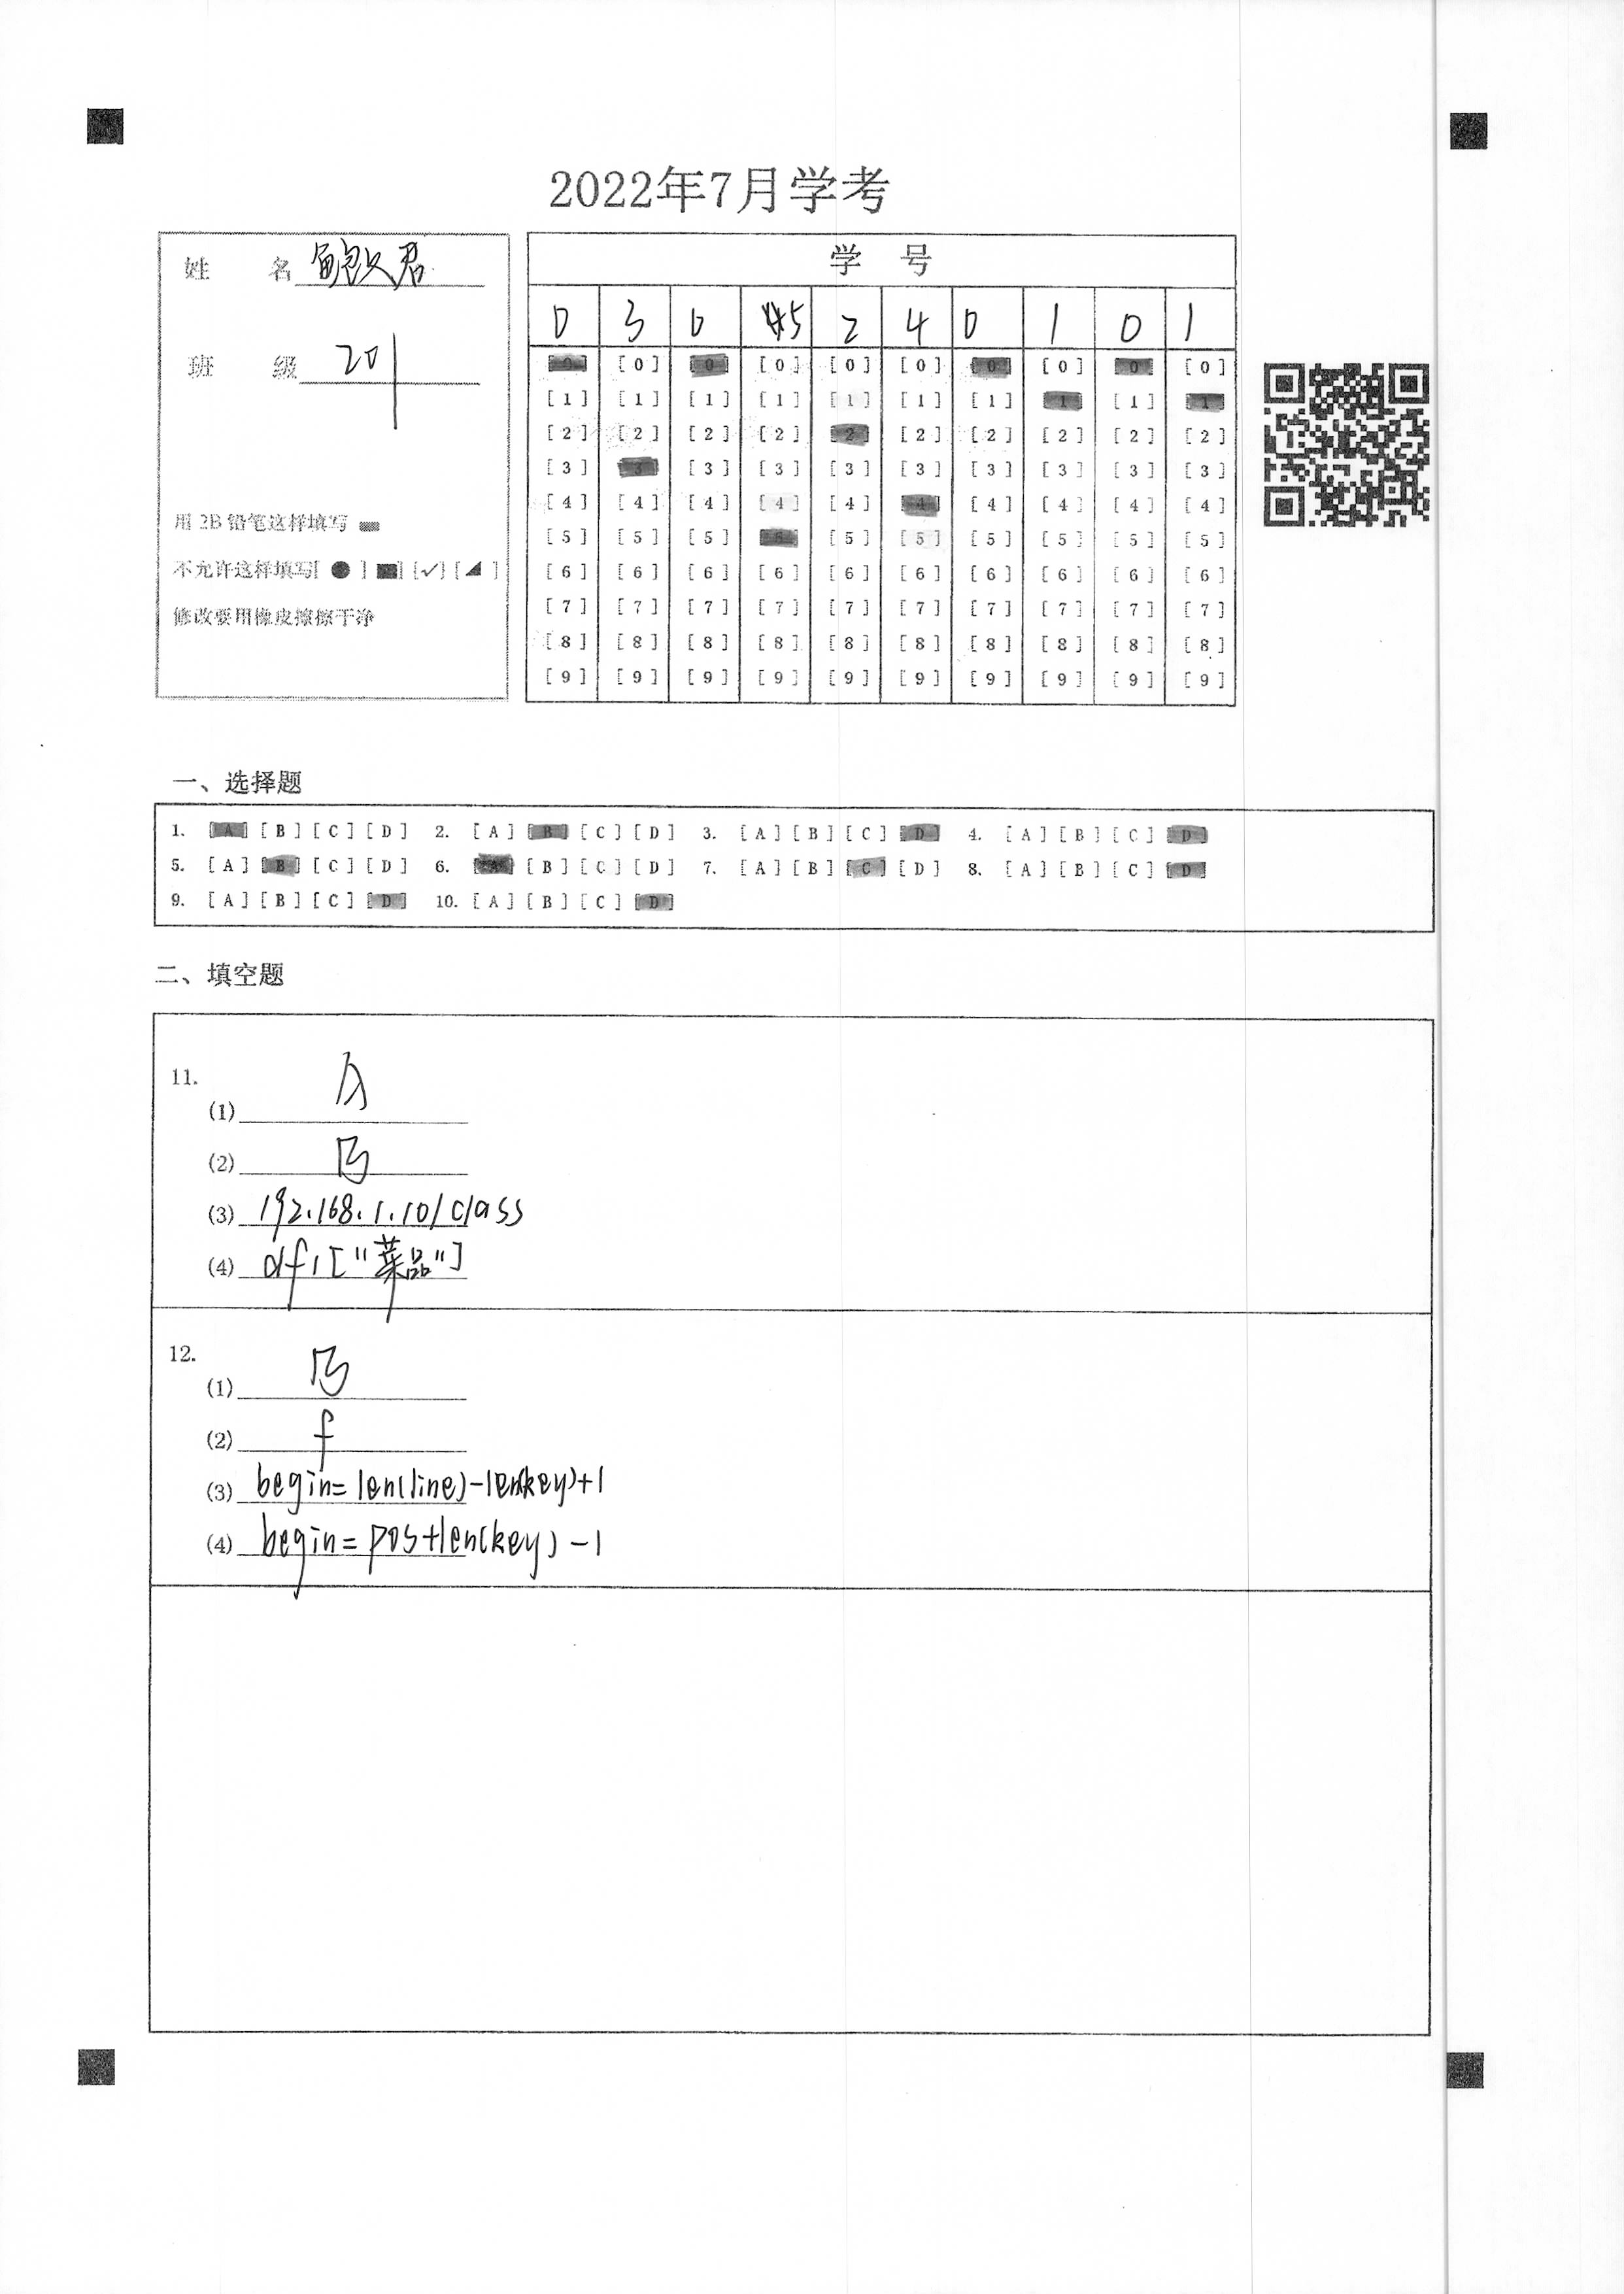 2022年7月学考
姓 名 鲍久君
班 级 201
用 2B 铅笔这样填写
不允许这样填写[ ● ] [■] [✓] [◢ ]
修改要用橡皮擦擦干净
学 号
0 3 0 5 2 4 0 1 0 1
[0] [0] [0] [0] [0] [0] [0] [0] [0] [0]
[1] [1] [1] [1] [1] [1] [1] [1] [1] [1]
[2] [2] [2] [2] [2] [2] [2] [2] [2] [2]
[3] [3] [3] [3] [3] [3] [3] [3] [3] [3]
[4] [4] [4] [4] [4] [4] [4] [4] [4] [4]
[5] [5] [5] [5] [5] [5] [5] [5] [5] [5]
[6] [6] [6] [6] [6] [6] [6] [6] [6] [6]
[7] [7] [7] [7] [7] [7] [7] [7] [7] [7]
[8] [8] [8] [8] [8] [8] [8] [8] [8] [8]
[9] [9] [9] [9] [9] [9] [9] [9] [9] [9]
一、选择题
1. [A] [B] [C] [D] 2. [A] [B] [C] [D] 3. [A] [B] [C] [D] 4. [A] [B] [C] [D]
5. [A] [B] [C] [D] 6. [A] [B] [C] [D] 7. [A] [B] [C] [D] 8. [A] [B] [C] [D]
9. [A] [B] [C] [D] 10. [A] [B] [C] [D]
二、填空题
11.
(1) A
(2) B
(3) 192.168.1.10/class
(4) df1["菜品"]
12.
(1) B
(2) f
(3) begin=len(line)-len(key)+1
(4) begin=pos+len(key)-1